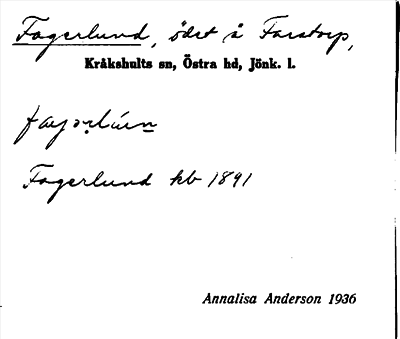 Fagerlund, ödet å Farstorp,
Kråkshults sn, Östra hd, Jönk. l.
Fagerlund kb 1891
Annalisa Anderson 1936